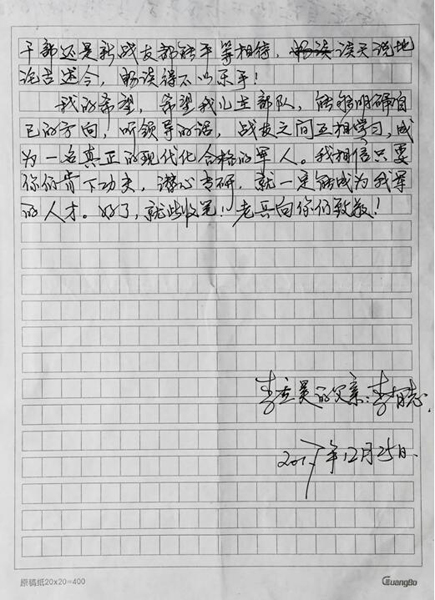 干部还是新战友都能平等相待，畅谈谈天说地
论古述今，畅谈得不亦乐乎！
我的希望，希望我儿在部队，能够明确自
己的方向，听领导的话，战友之间互相学习，成
为一名真正的现代化合格的军人。我相信只要
你们肯下功夫，潜心专研，就一定能成为我军
的人才。好了，就此收笔！老兵向你们致敬！
李昊的父亲：李志
年12月25日
原稿纸20x20=400
GuangBo